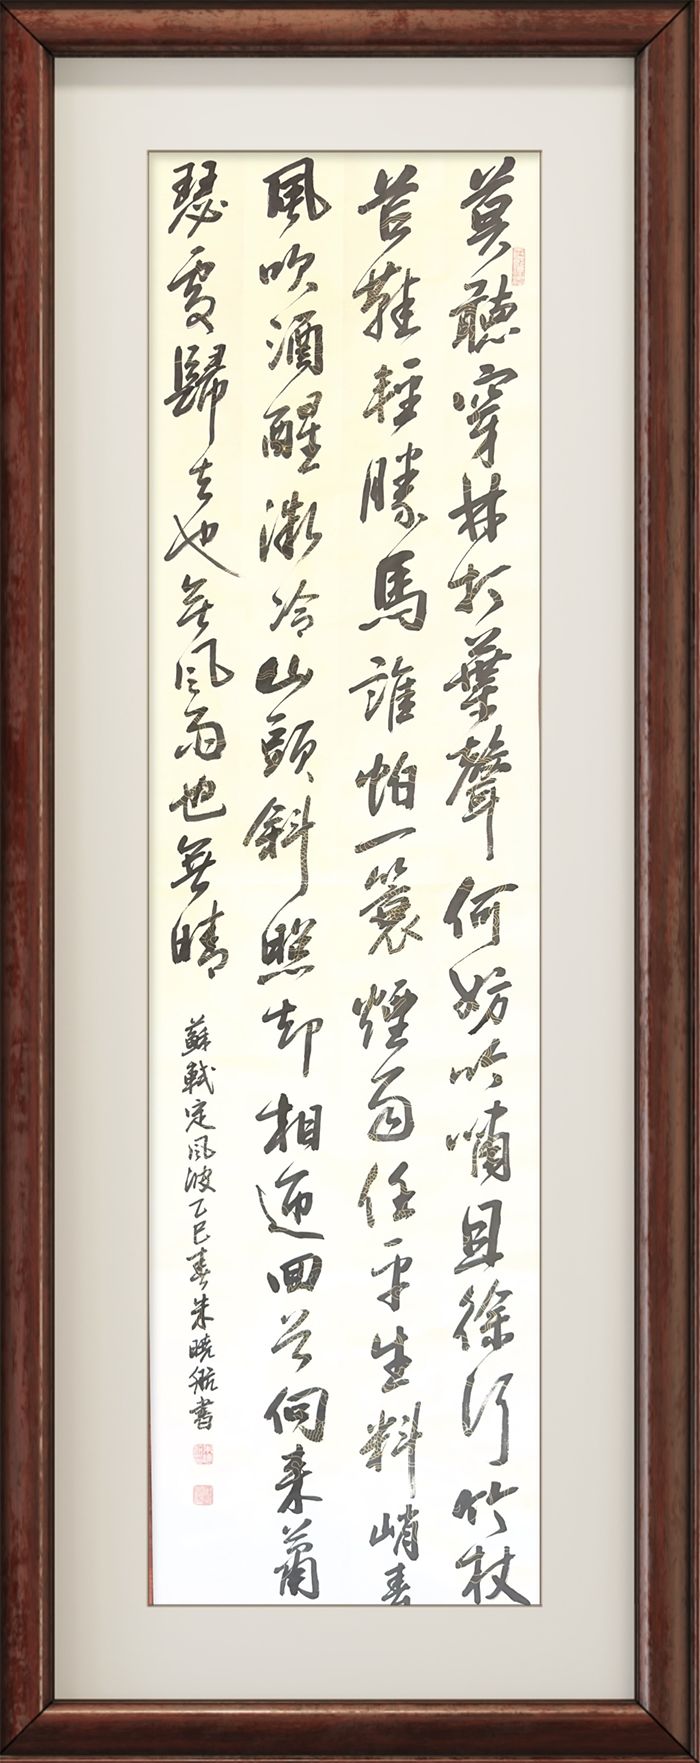 莫聽穿林打葉聲何妨吟嘯且徐行竹杖
芒鞋輕勝馬誰怕一蓑煙雨任平生料峭春
風吹酒醒微冷山頭斜照却相迎回首向來蕭
瑟處歸去也無風雨也無晴
蘇軾定風波乙巳春朱曉航書